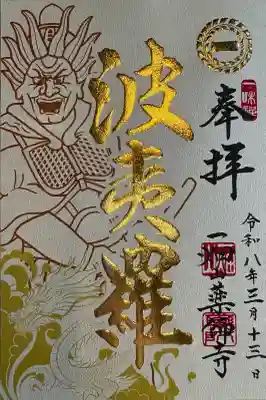 奉拝
令和八年三月十三日
一畑山薬師寺
波夷羅